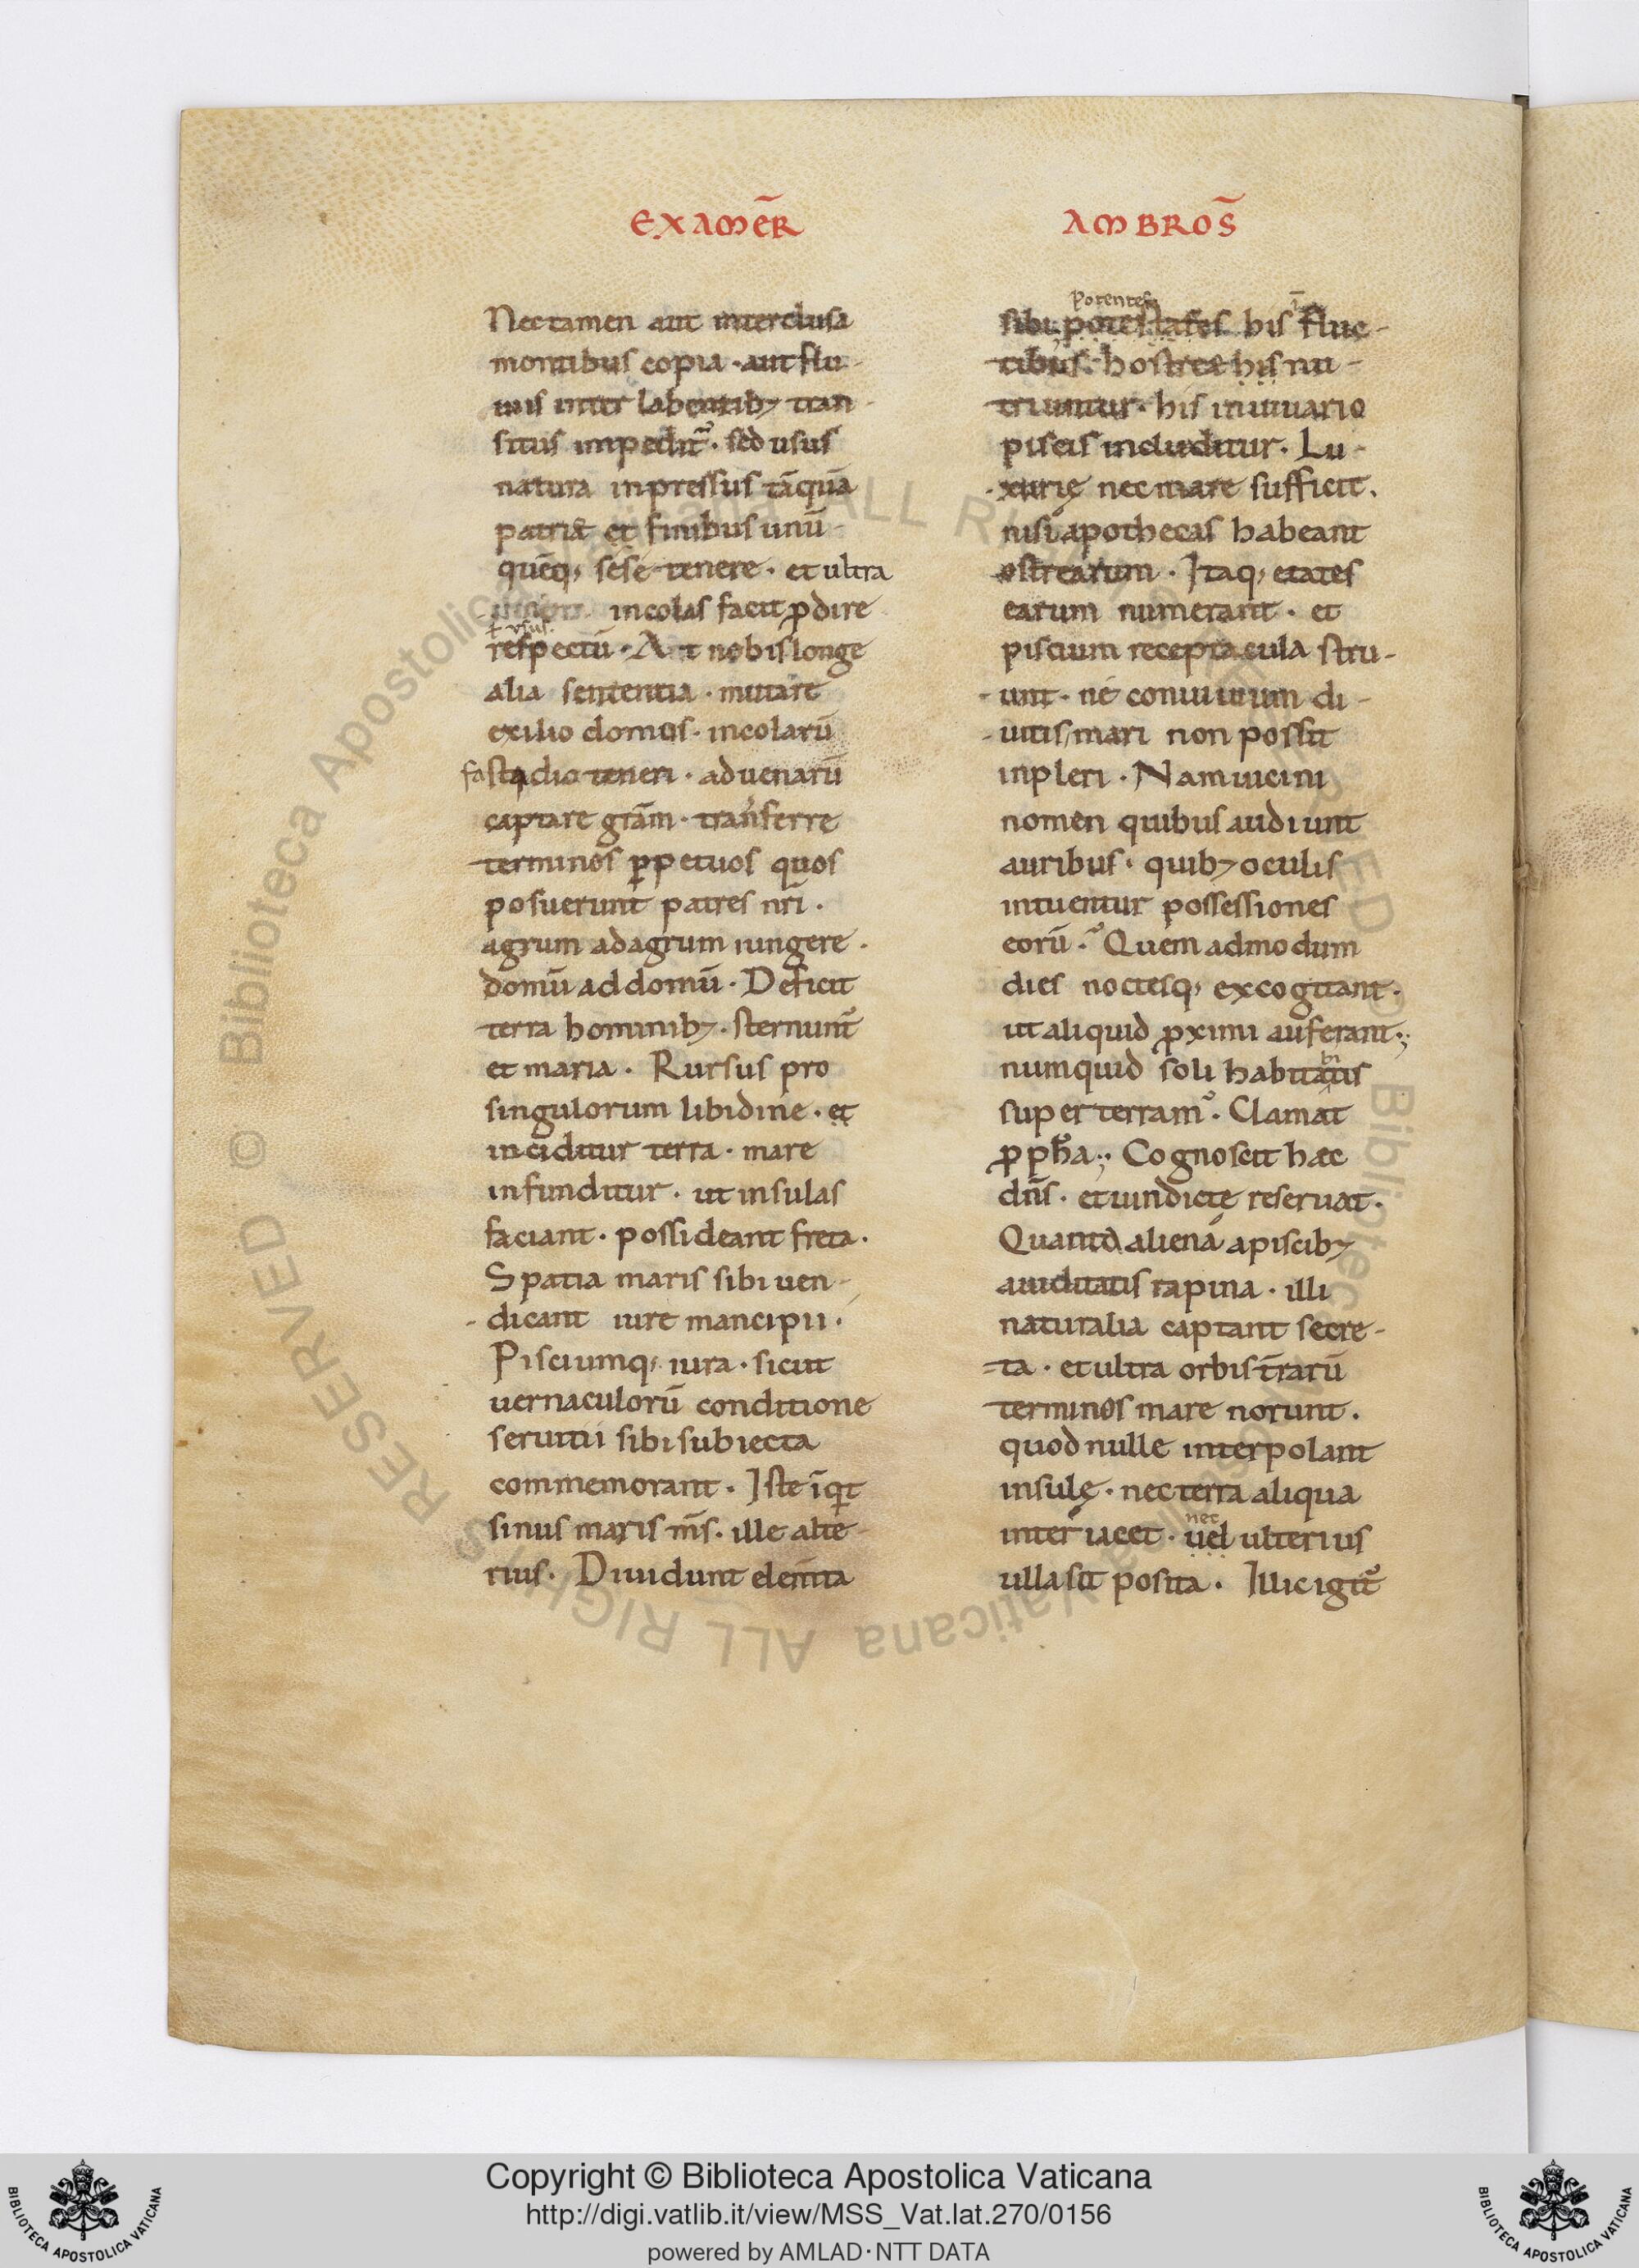 EXAMER̄
Nec tamen aut interclusa
montibus copia · aut flu-
uiis inter labentibꝫ tran-
situs impedit᷑ · sed usus
natura inpressus tāquā
patriȩ et finibus unū-
quēqꝫ sese tenere · et ultra
incolas facit ꝓdire
ł usus
respectū · At nobis longe
alia sententia · mutare
exilio domos · incolarū
fastidio teneri · aduenarū
captare gr̄am · transferre
terminos ꝑpetuos quos
posuerunt patres nr̄i ·
agrum ad agrum iungere ·
domū ad domū · Deficit
terra hominibꝫ · sternunt᷑
et maria · Rursus pro
singulorum libidine · et
inciditur terra · mare
infunditur · ut insulas
faciant · possideant freta ·
Spatia maris sibi uen-
- dicant iure mancipii ·
Pisciumqꝫ iura · sicut
uernaculorū conditione
seruitii sibi subiecta
commemorant · Iste īqt
sinus maris m̄s · ille alte-
rius · Diuidunt elem̄ta
AMBROS̄
potentes
sibi potestates his fluc-
-tibus · hostreȩ his nu-
-triuntur · his inuiuario
piscis includitur · Lu-
-xurię nec mare sufficit ·
nisi apothecas habeant
ostrearum · Itaqꝫ etates
earum numerant · et
piscium receptacula stru-
- unt · ne conuiuium di-
- uitis mari non possit
inpleri · Nam uicini
nomen quibus audiunt
auribus · quibꝫ oculis
intuentur possessiones
eorū · Quem admodum
dies noctesqꝫ excogitant ·
ut aliquid ꝓximi auferant ·,
bi
numquid soli habitatis
super terram · Clamat
ꝓpħa ·, Cognoscit hæc
dn̄s · et uindictę reseruat ·
Quanto aliena a piscibꝫ
auiditatis rapina · illi
naturalia captant secre-
=ta · et ultra orbis t̄rarū
terminos mare norunt ·
quod nulle interpolant
insulę · nec terra aliqua
nec
inter iacet · uel ulterius
ulla sit posita · Illic igit᷑
© Biblioteca Apostolica Vaticana ALL RIGHTS RESERVED
Copyright © Biblioteca Apostolica Vaticana
http://digi.vatlib.it/view/MSS_Vat.lat.270/0156
powered by AMLAD·NTT DATA
BIBLIOTECA APOSTOLICA VATICANA
BIBLIOTECA APOSTOLICA VATICANA